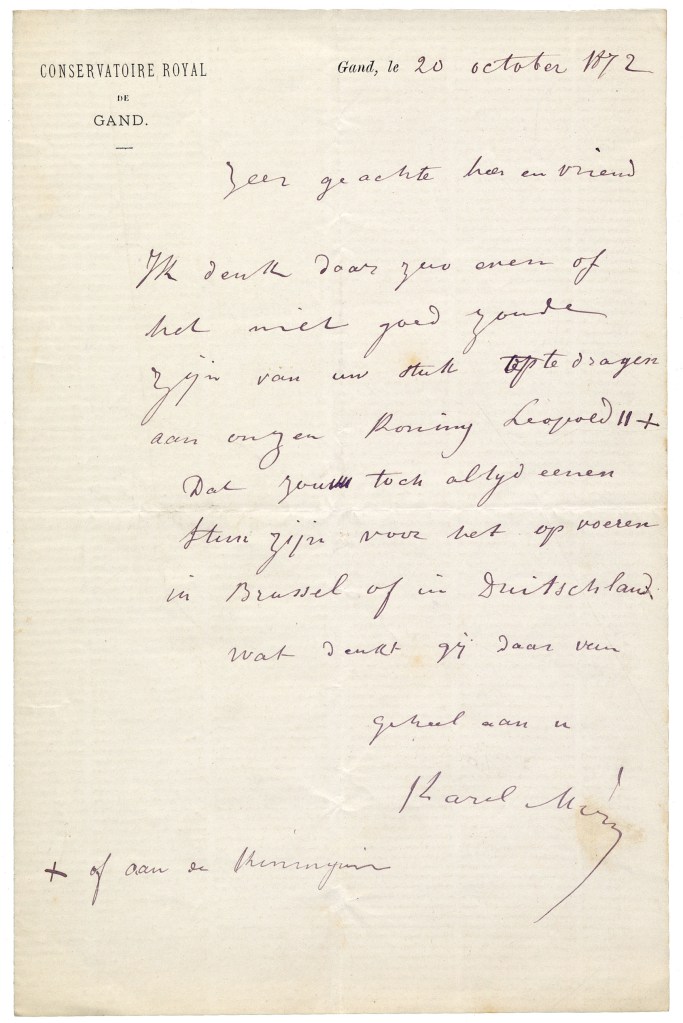 CONSERVATOIRE ROYAL
DE
GAND.
Gand, le 20 october 1872
Zeer geachte heer en vriend
Ik denk daar zoo even of
het niet goed zoude
zijn van uw stuk op te dragen
aan onzen Koning Leopold II +
Dat zou toch altyd eenen
steun zijn voor het op voeren
in Brussel of in Duitschland.
wat denkt gij daar van
geheel aan u
Karel Miry
+ of aan de Koningin